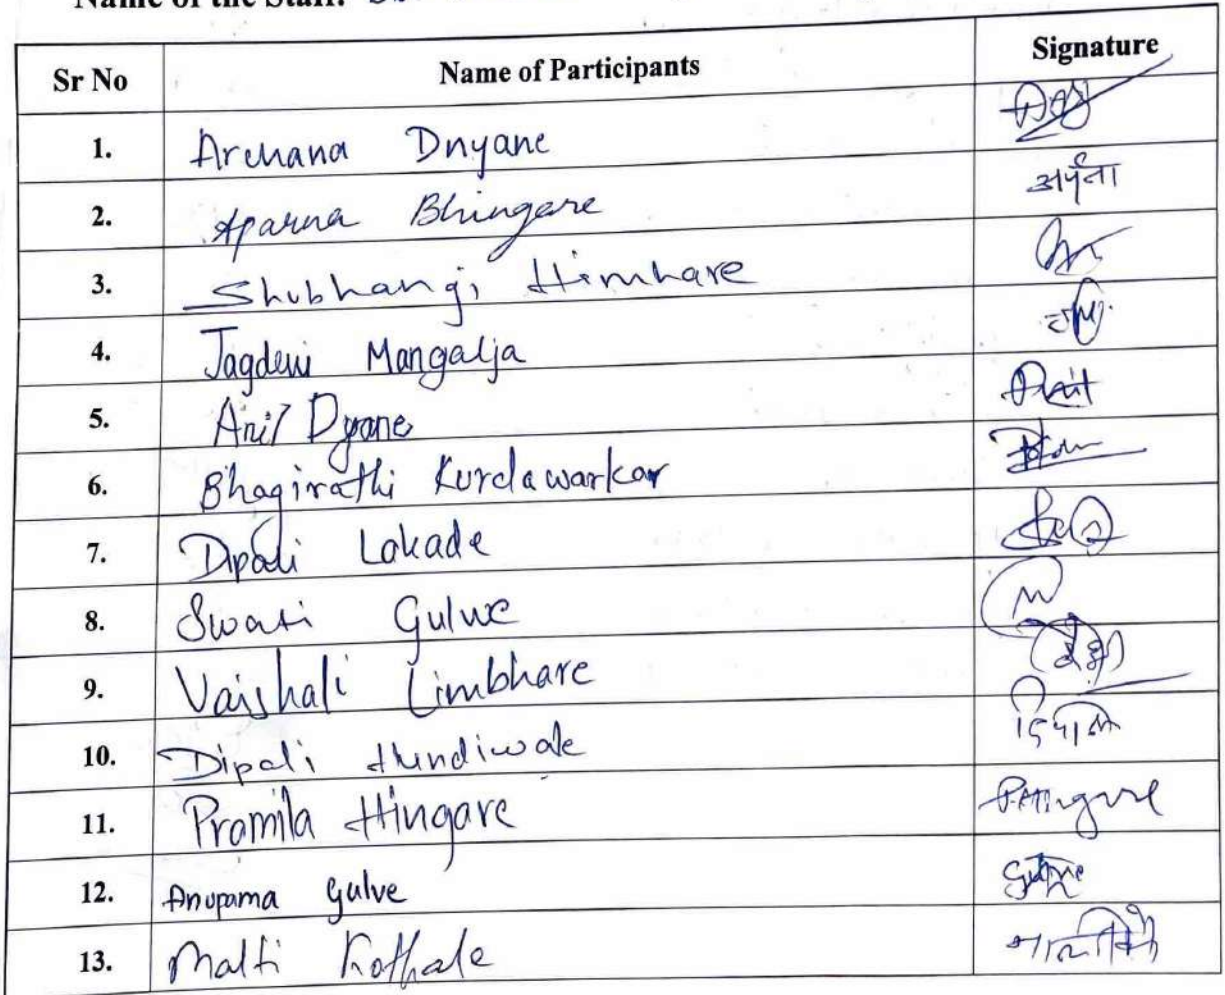 Name of the Staff:
Sr No Name of Participants Signature
1. Archana Dnyane
2. Aparna Bhingare अर्पना
3. Shubhangi Himhare
4. Jagdevi Mangalja
5. Anil Dyane
6. Bhagirathi Kurdawarkar
7. Dipali Lokade
8. Swati Gulve
9. Vaishali Limbhare
10. Dipali Hundiwale
11. Pramila Hingare P.Hingare
12. Anupama Gulve Gulve
13. Malti Kothale